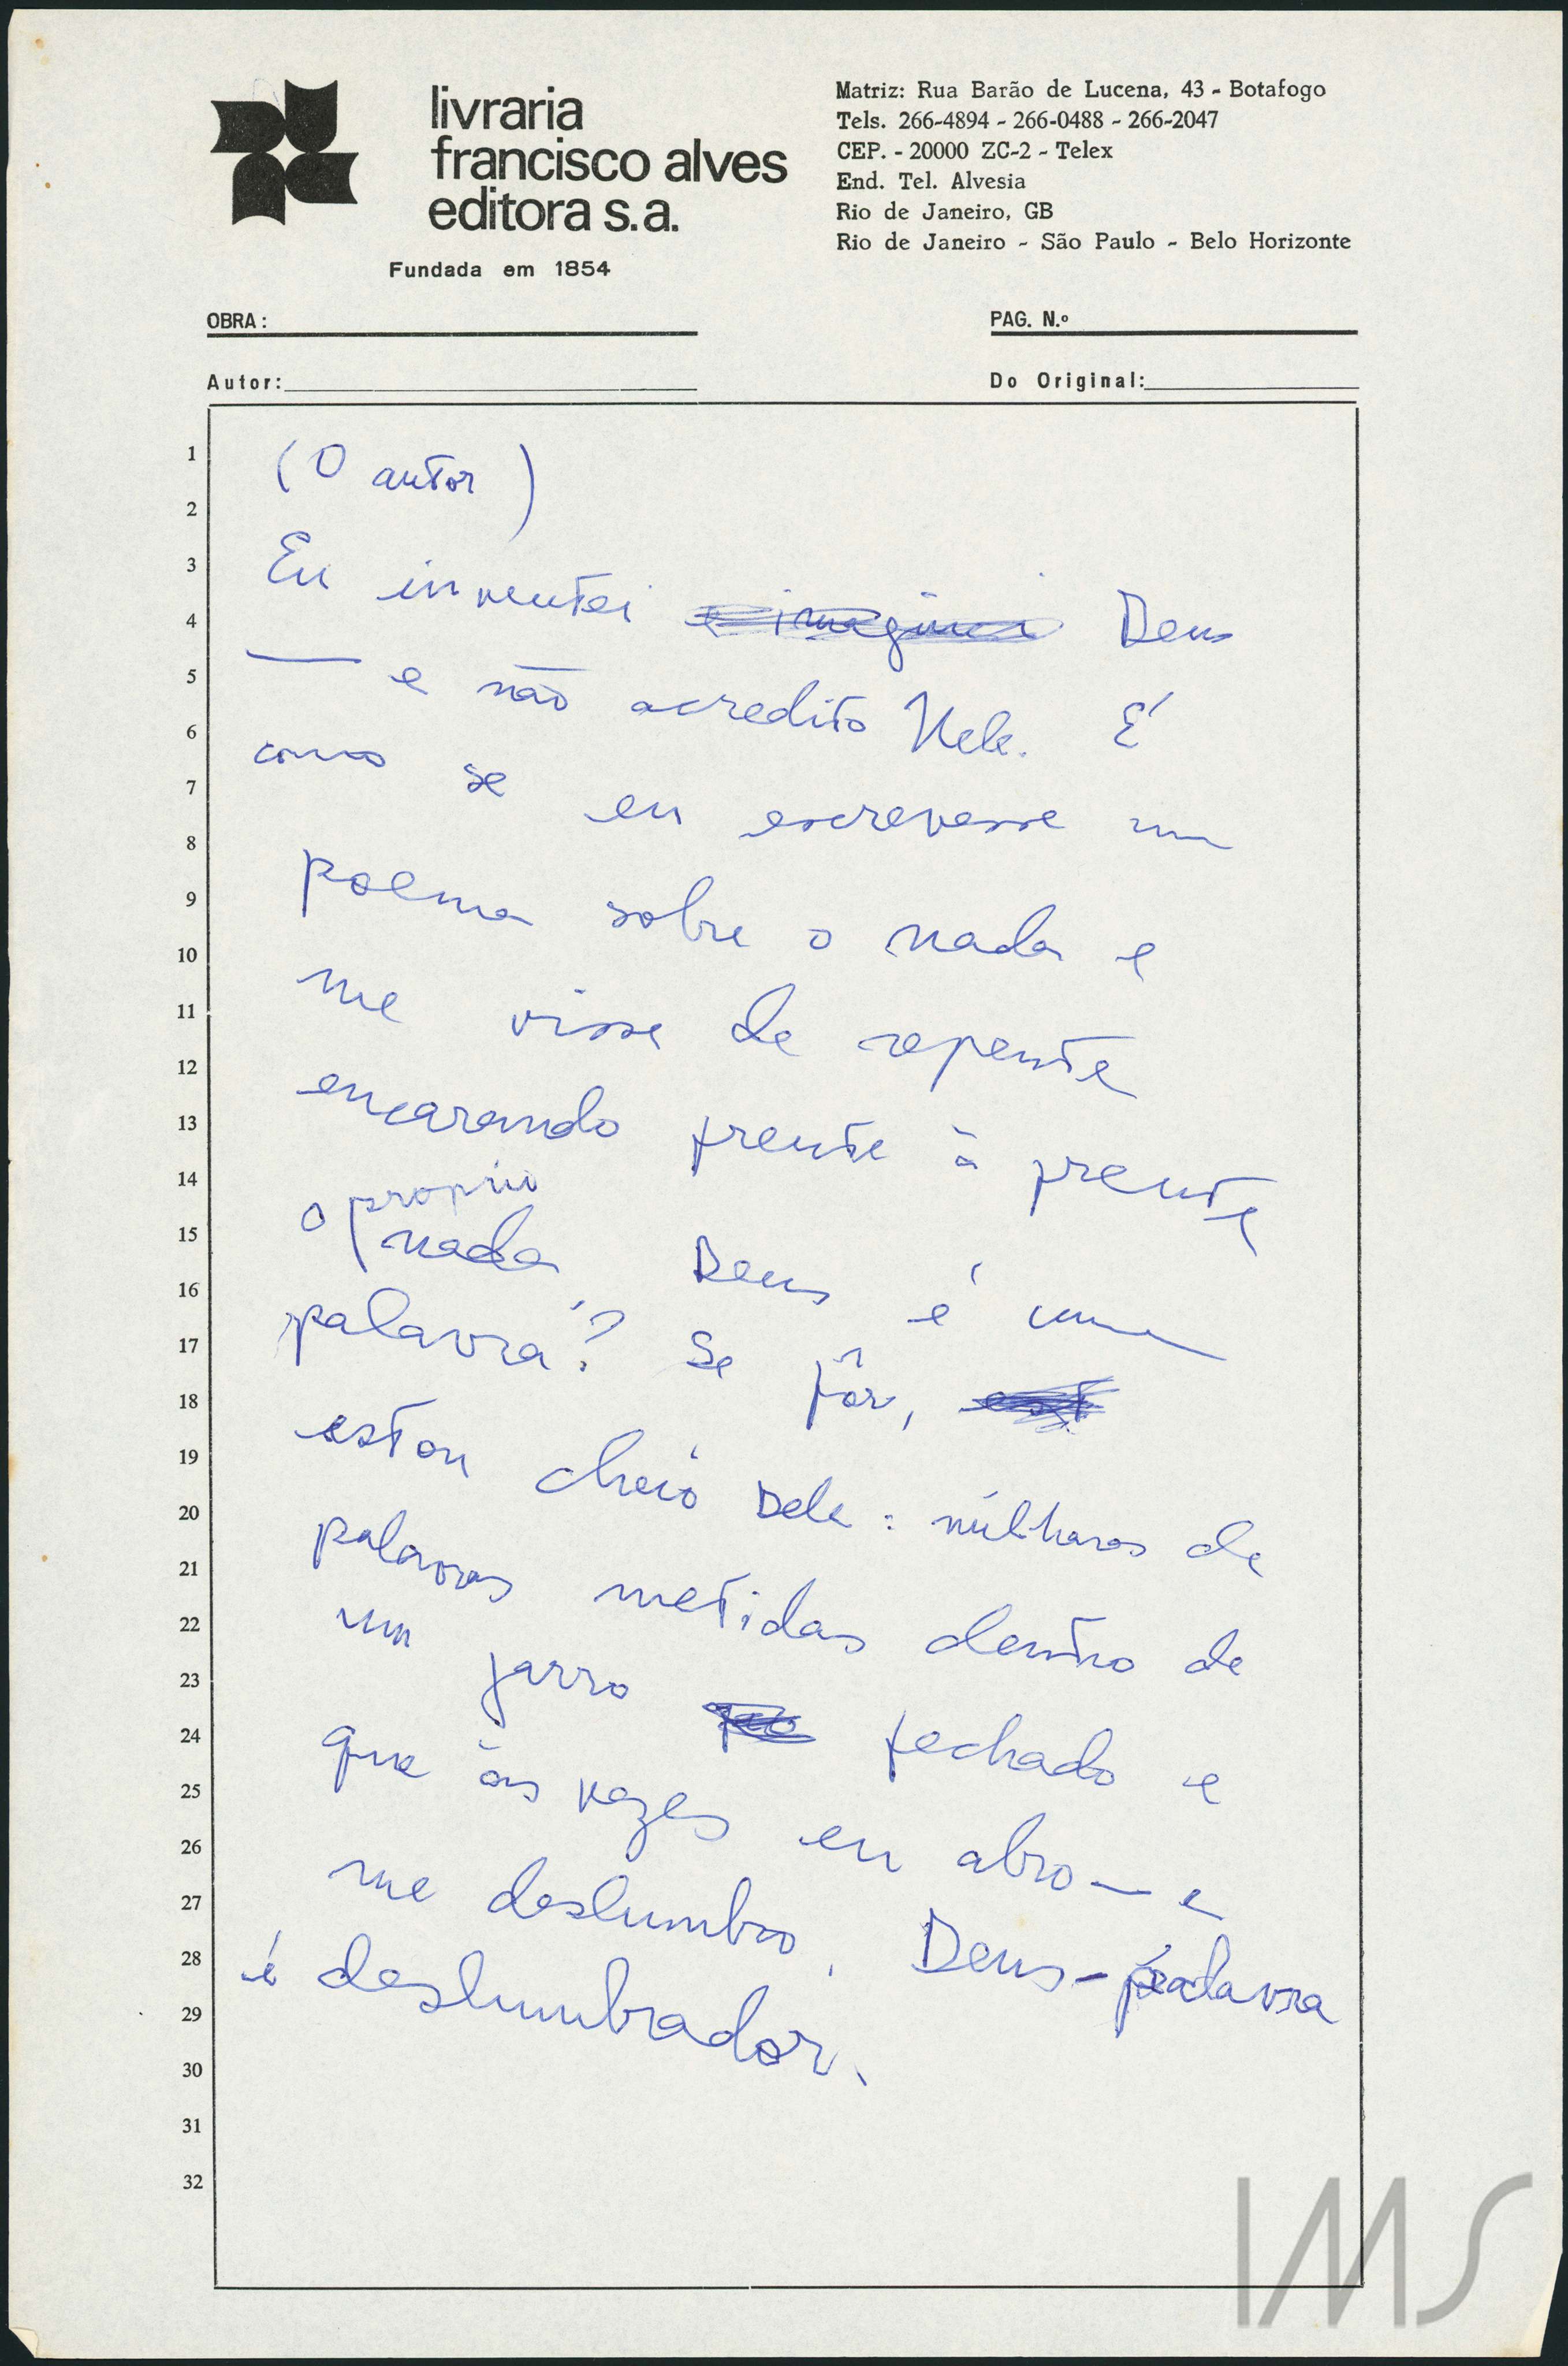 livraria
francisco alves
editora s.a.
Fundada em 1854
Matriz: Rua Barão de Lucena, 43 - Botafogo
Tels. 266-4894 - 266-0488 - 266-2047
CEP. - 20000 ZC-2 - Telex
End. Tel. Alvesia
Rio de Janeiro, GB
Rio de Janeiro - São Paulo - Belo Horizonte
OBRA:
PAG. N.º
Autor:
Do Original:
1
2
3
4
5
6
7
8
9
10
11
12
13
14
15
16
17
18
19
20
21
22
23
24
25
26
27
28
29
30
31
32
(O autor)
Eu inventei e imaginei Deus
— e não acredito Nele. É
como se eu escrevesse um
poema sobre o nada e
me visse de repente
encarando frente à frente
o proprio
nada Deus é uma
palavra? Se fôr,
estou cheio Dele: milhares de
palavras metidas dentro de
um jarro fechado e
que às vezes eu abro — e
me deslumbro. Deus-palavra
é deslumbrador.
IMS